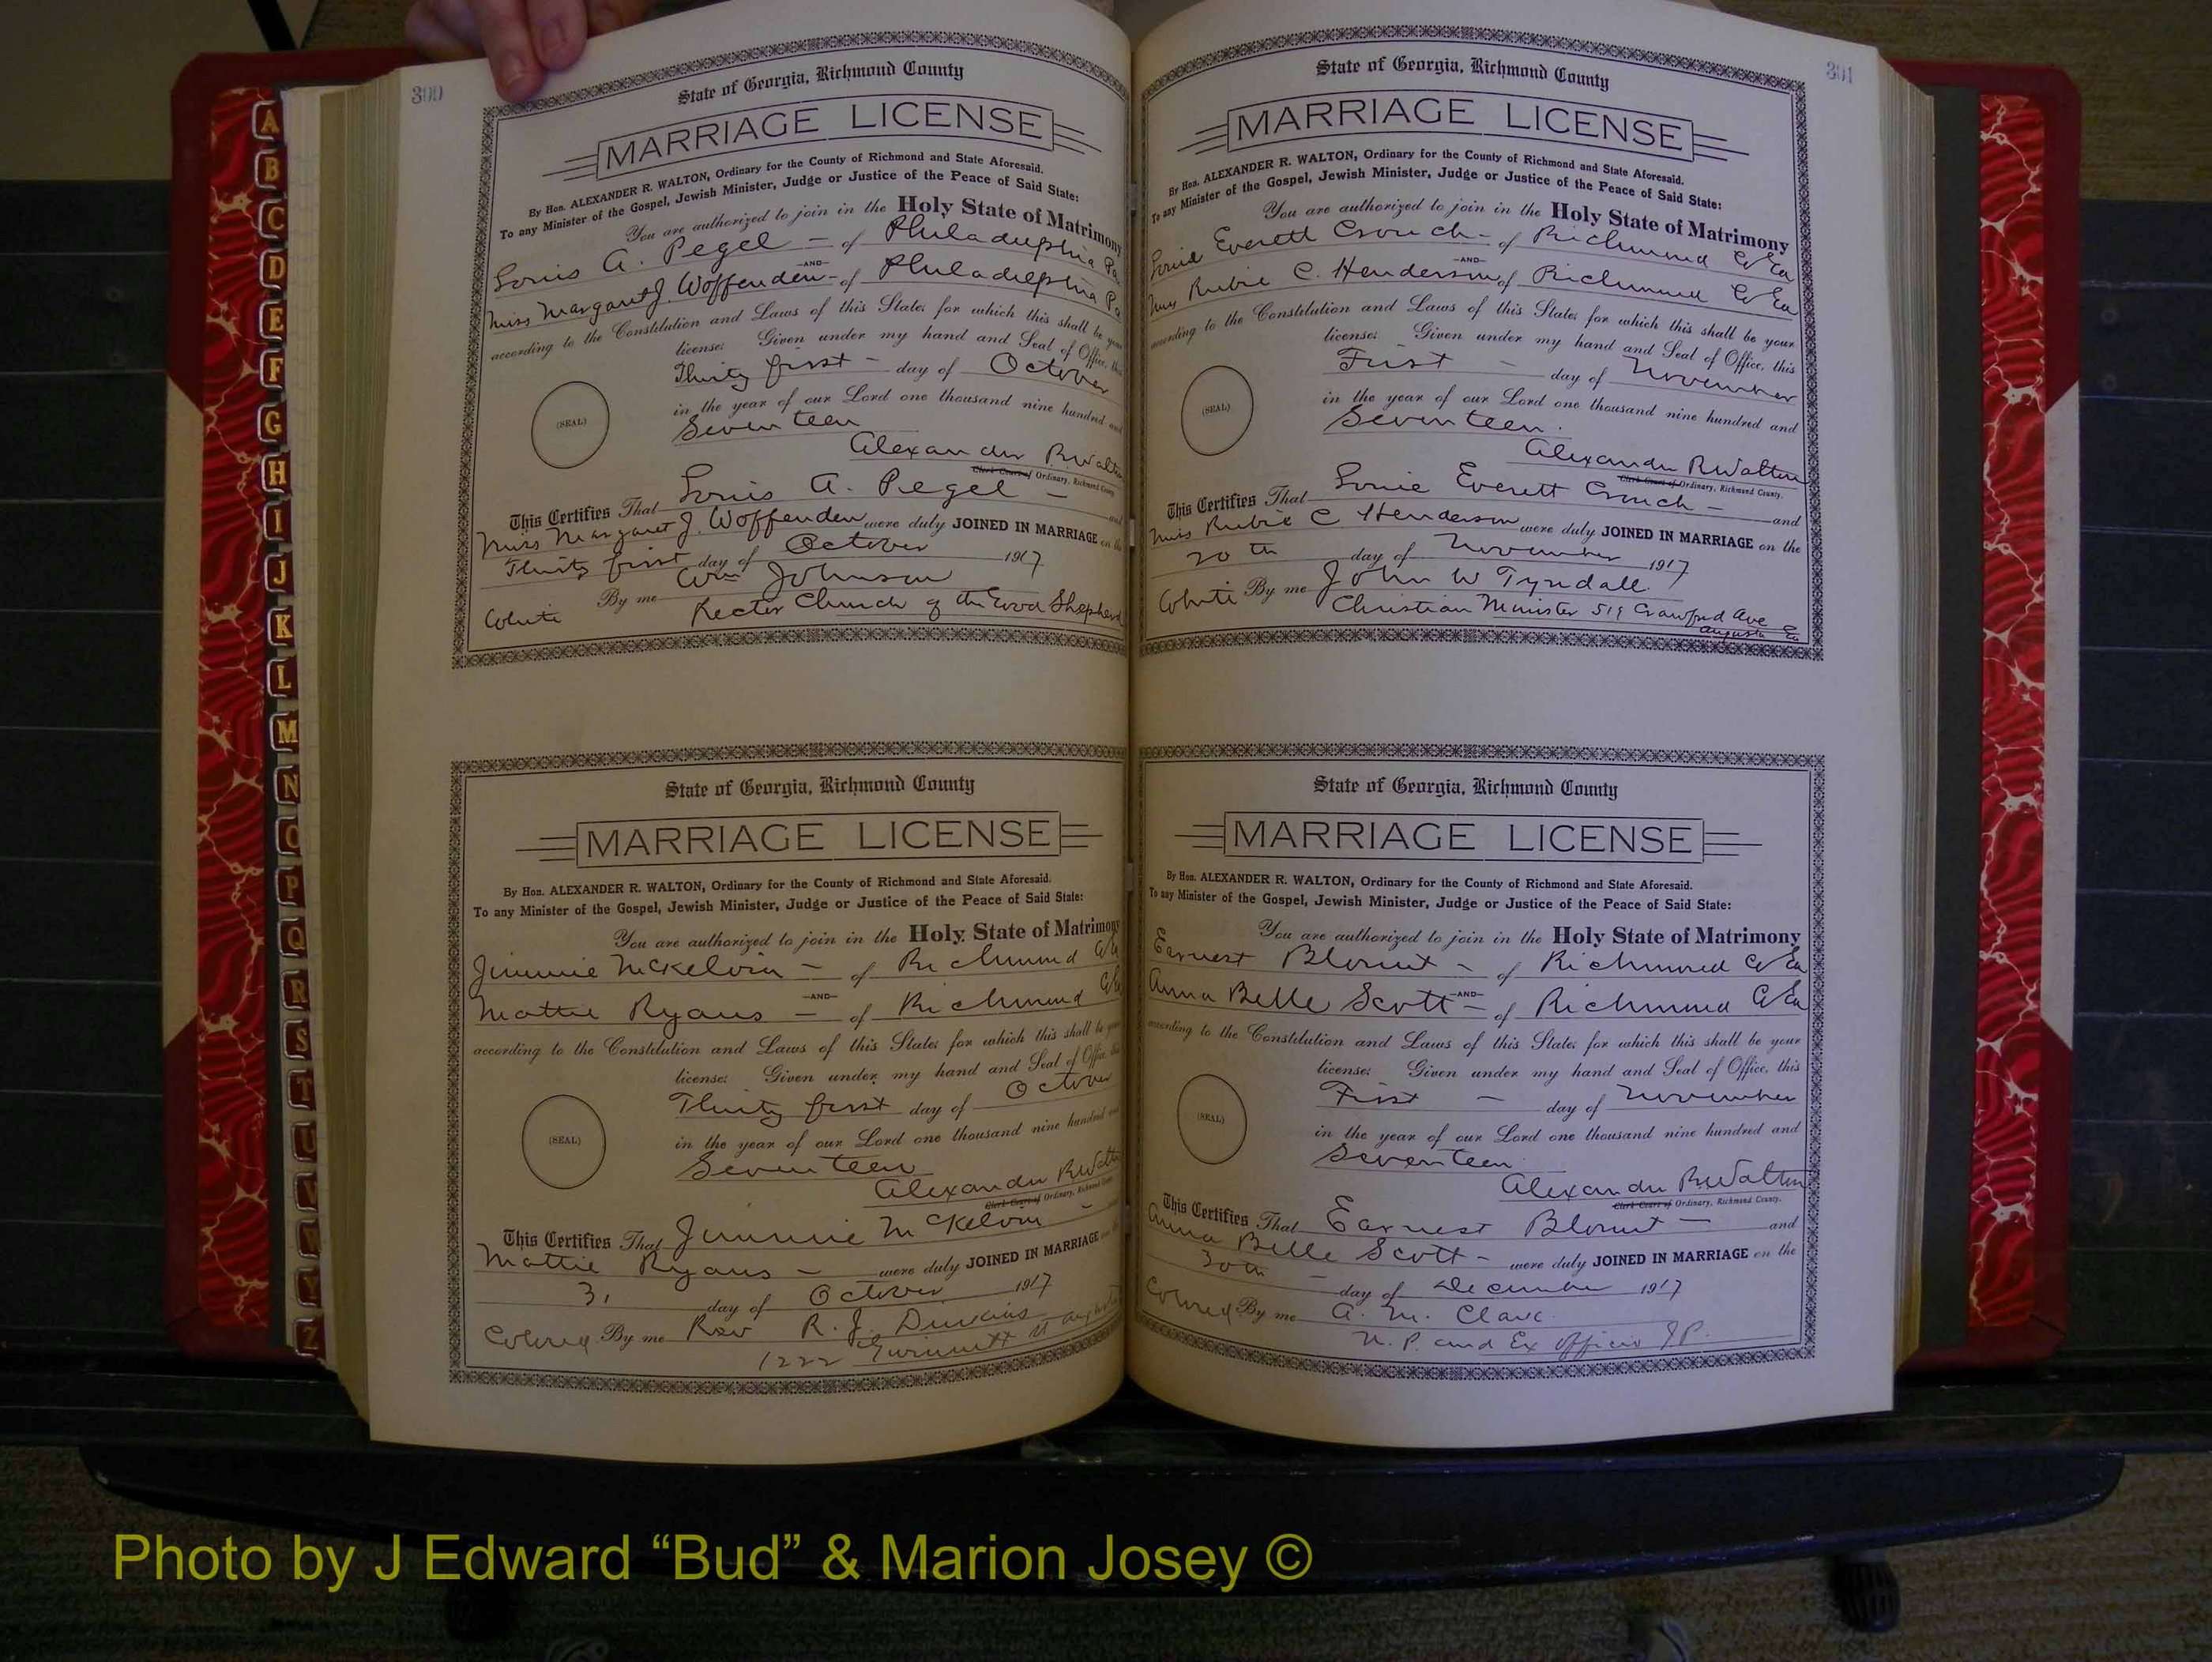 300
State of Georgia, Richmond County
MARRIAGE LICENSE
By Hon. ALEXANDER R. WALTON, Ordinary for the County of Richmond and State Aforesaid.
To any Minister of the Gospel, Jewish Minister, Judge or Justice of the Peace of Said State:
You are authorized to join in the Holy State of Matrimony
Louis A. Pegel - of Philadelphia Pa
-AND-
Miss Margaret J. Woffenden - of Philadelphia Pa
according to the Constitution and Laws of this State; for which this shall be your
license: Given under my hand and Seal of Office, this
Thirty first - day of October
(SEAL)
in the year of our Lord one thousand nine hundred and
Seventeen
Alexander R Walton
Clerk Court of Ordinary, Richmond County.
This Certifies That Louis A. Pegel - and
Miss Margaret J. Woffenden were duly JOINED IN MARRIAGE on the
Thirty first day of October 1917
White By me Wm Johnson
Rector Church of the Good Shepherd
State of Georgia, Richmond County
MARRIAGE LICENSE
By Hon. ALEXANDER R. WALTON, Ordinary for the County of Richmond and State Aforesaid.
To any Minister of the Gospel, Jewish Minister, Judge or Justice of the Peace of Said State:
You are authorized to join in the Holy State of Matrimony
Jimmie McKelvin - of Richmond Co Ga
-AND-
Mattie Ryans - of Richmond Co Ga
according to the Constitution and Laws of this State; for which this shall be your
license: Given under my hand and Seal of Office this
Thirty first day of October
(SEAL)
in the year of our Lord one thousand nine hundred and
Seventeen
Alexander R Walton
Clerk Court of Ordinary, Richmond County.
This Certifies That Jimmie McKelvin - and
Mattie Ryans - were duly JOINED IN MARRIAGE on the
31 day of October 1917
Colored By me Rev R. J. Dunkins
1222 Gwinnett St Augusta
301
State of Georgia, Richmond County
MARRIAGE LICENSE
By Hon. ALEXANDER R. WALTON, Ordinary for the County of Richmond and State Aforesaid.
To any Minister of the Gospel, Jewish Minister, Judge or Justice of the Peace of Said State:
You are authorized to join in the Holy State of Matrimony
Lonie Everett Crouch - of Richmond Co Ga
-AND-
Miss Rubie C. Henderson of Richmond Co Ga
according to the Constitution and Laws of this State; for which this shall be your
license: Given under my hand and Seal of Office, this
First - day of November
(SEAL)
in the year of our Lord one thousand nine hundred and
Seventeen.
Alexander R Walton
Clerk Court of Ordinary, Richmond County.
This Certifies That Lonie Everett Crouch - and
Miss Rubie C Henderson were duly JOINED IN MARRIAGE on the
20th day of November 1917
White By me John W Tyndall.
Christian Minister 519 Crawford Ave
Augusta Ga
State of Georgia, Richmond County
MARRIAGE LICENSE
By Hon. ALEXANDER R. WALTON, Ordinary for the County of Richmond and State Aforesaid.
To any Minister of the Gospel, Jewish Minister, Judge or Justice of the Peace of Said State:
You are authorized to join in the Holy State of Matrimony
Earnest Blount - of Richmond Co Ga
-AND-
Anna Belle Scott - of Richmond Co Ga
according to the Constitution and Laws of this State; for which this shall be your
license: Given under my hand and Seal of Office, this
First - day of November
(SEAL)
in the year of our Lord one thousand nine hundred and
Seventeen
Alexander R Walton
Clerk Court of Ordinary, Richmond County.
This Certifies That Earnest Blount - and
Anna Belle Scott - were duly JOINED IN MARRIAGE on the
30th - day of December 1917
Colored By me A. M. Clark
N. P. and Ex officio J P.
A
B
C
D
E
F
G
H
I
J
K
L
M
N
O
P
Q
R
S
T
U
V
W
Y
Z
Photo by J Edward “Bud” & Marion Josey ©